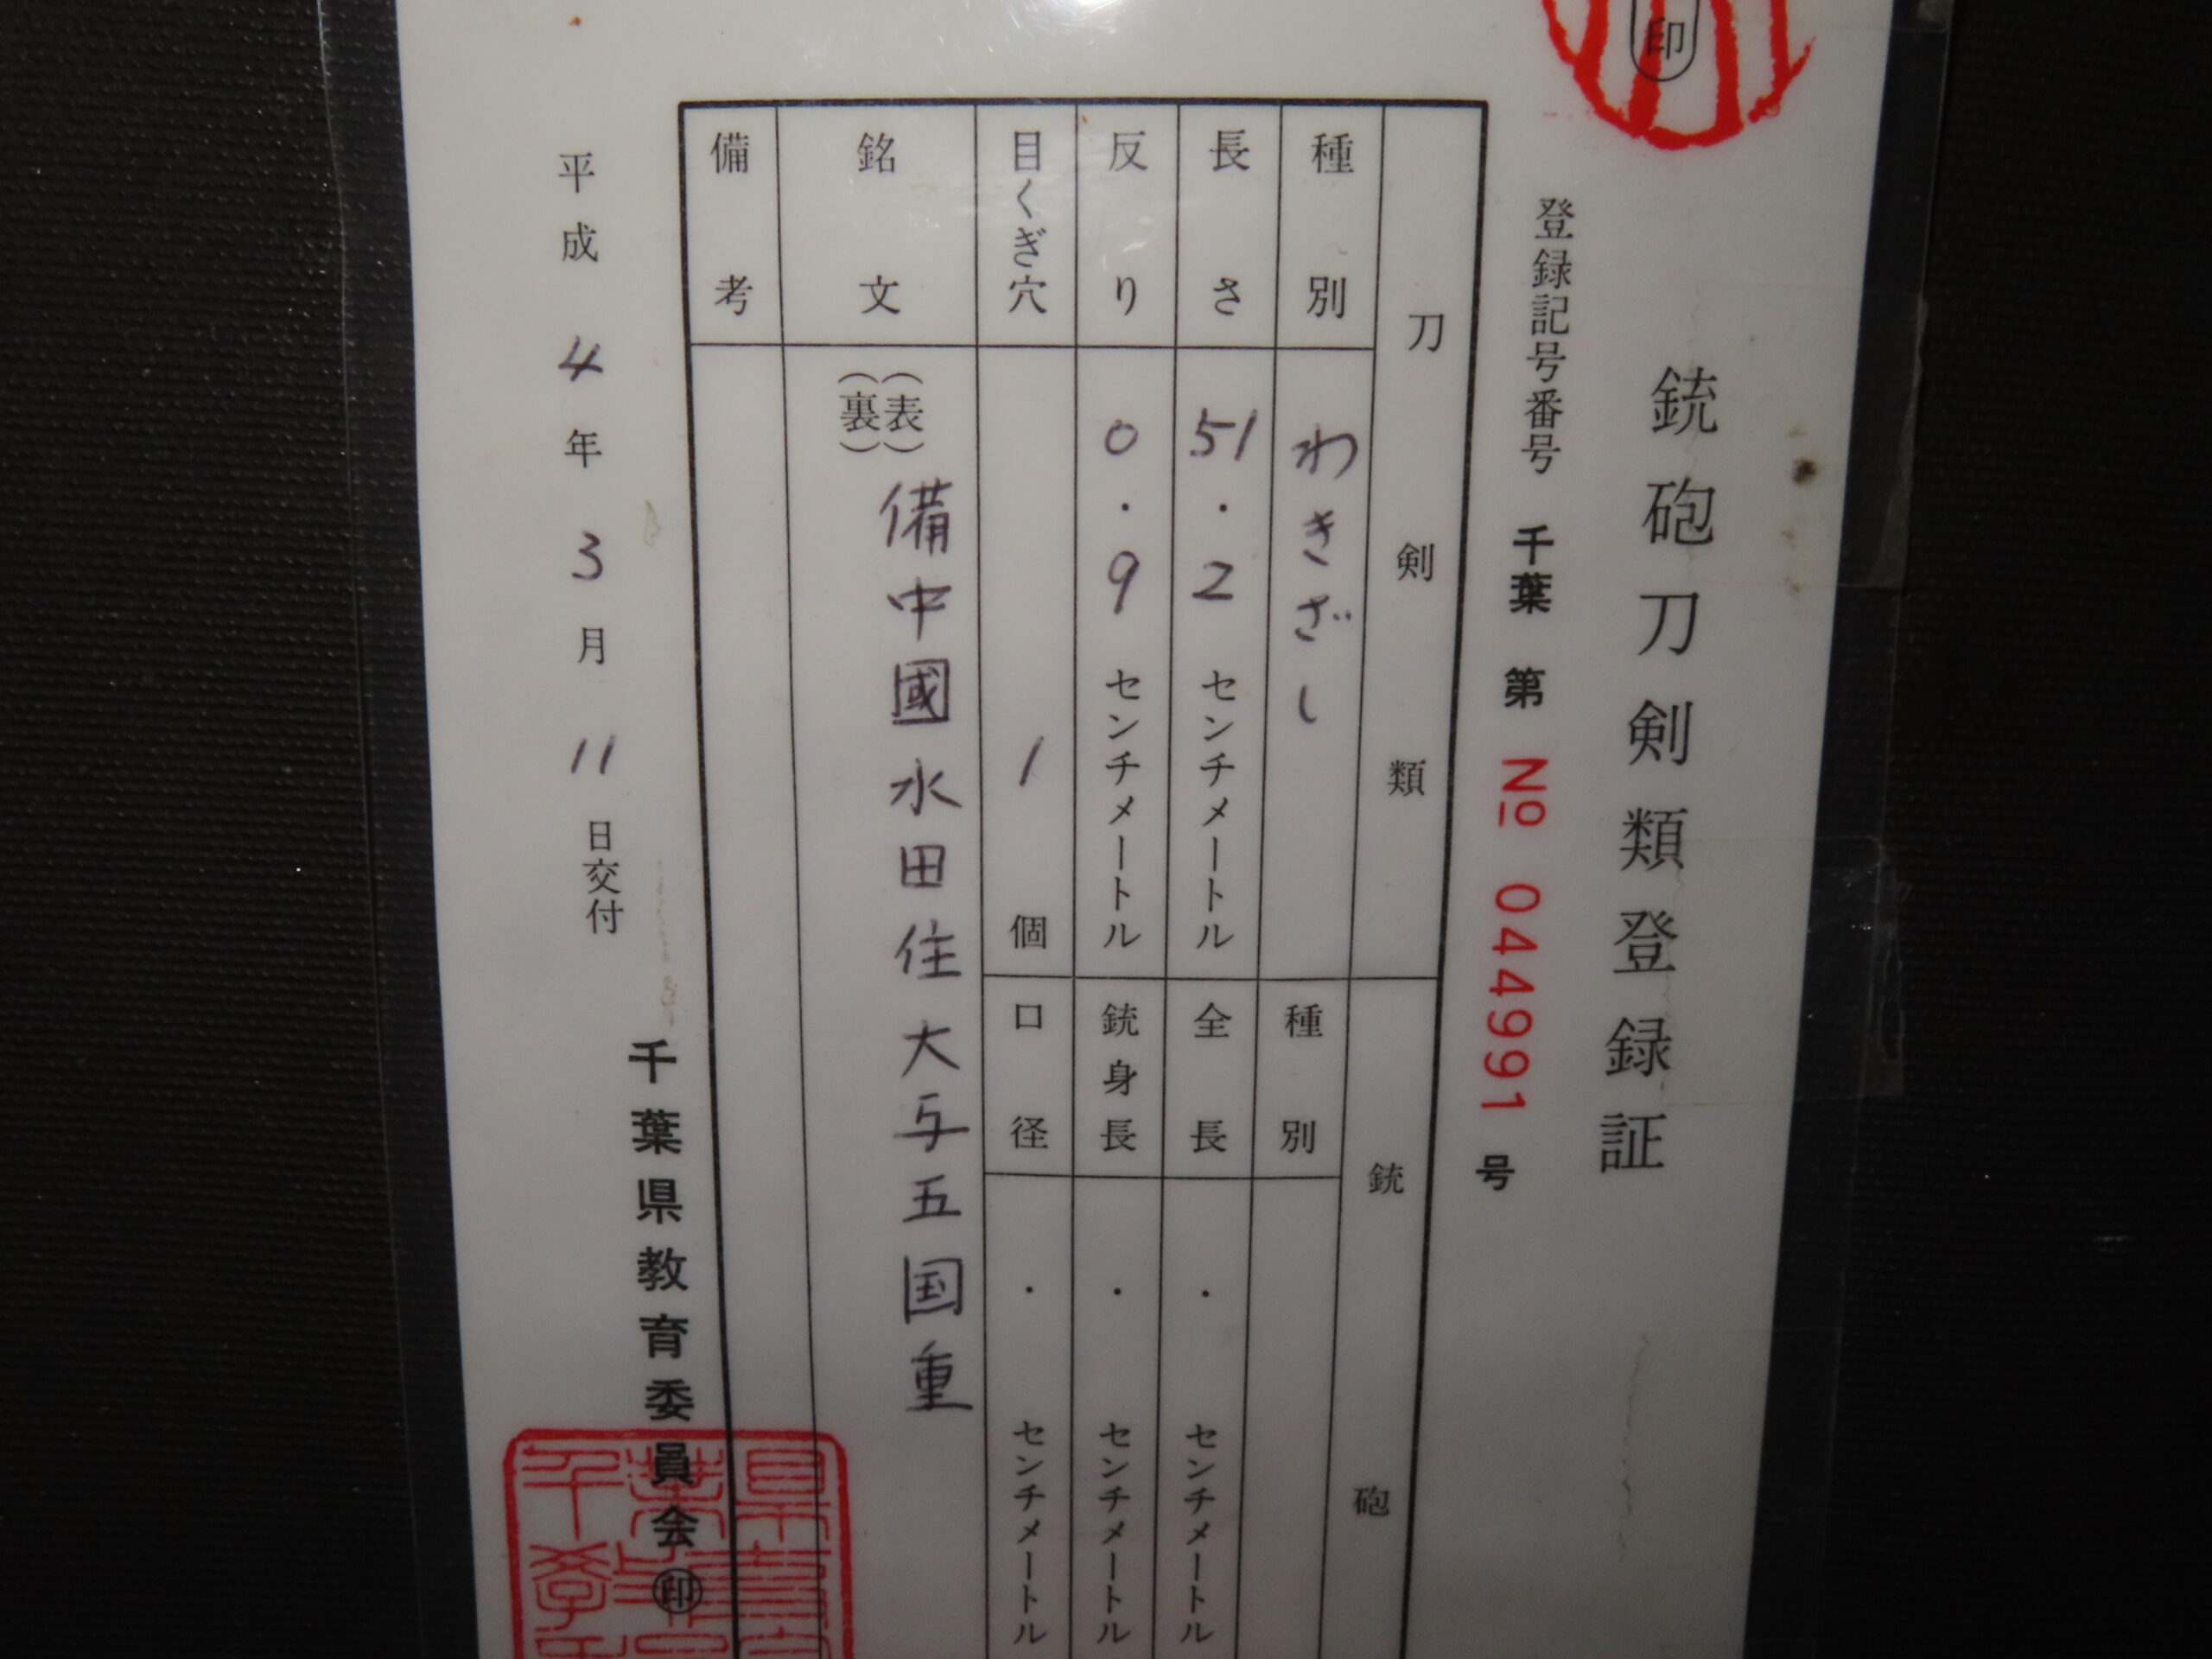 印
銃砲刀剣類登録証
登録記号番号 千葉 第 No 044991 号
刀剣類
種別 わきざし
長さ 51.2 センチメートル
反り 0.9 センチメートル
目くぎ穴 1 個
銘文 (表) 備中國水田住大与五国重
(裏)
備考
銃砲
種別
全長 ・ センチメートル
銃身長 ・ センチメートル
口径 ・ センチメートル
平成 4 年 3 月 11 日交付
千葉県教育委員会 印